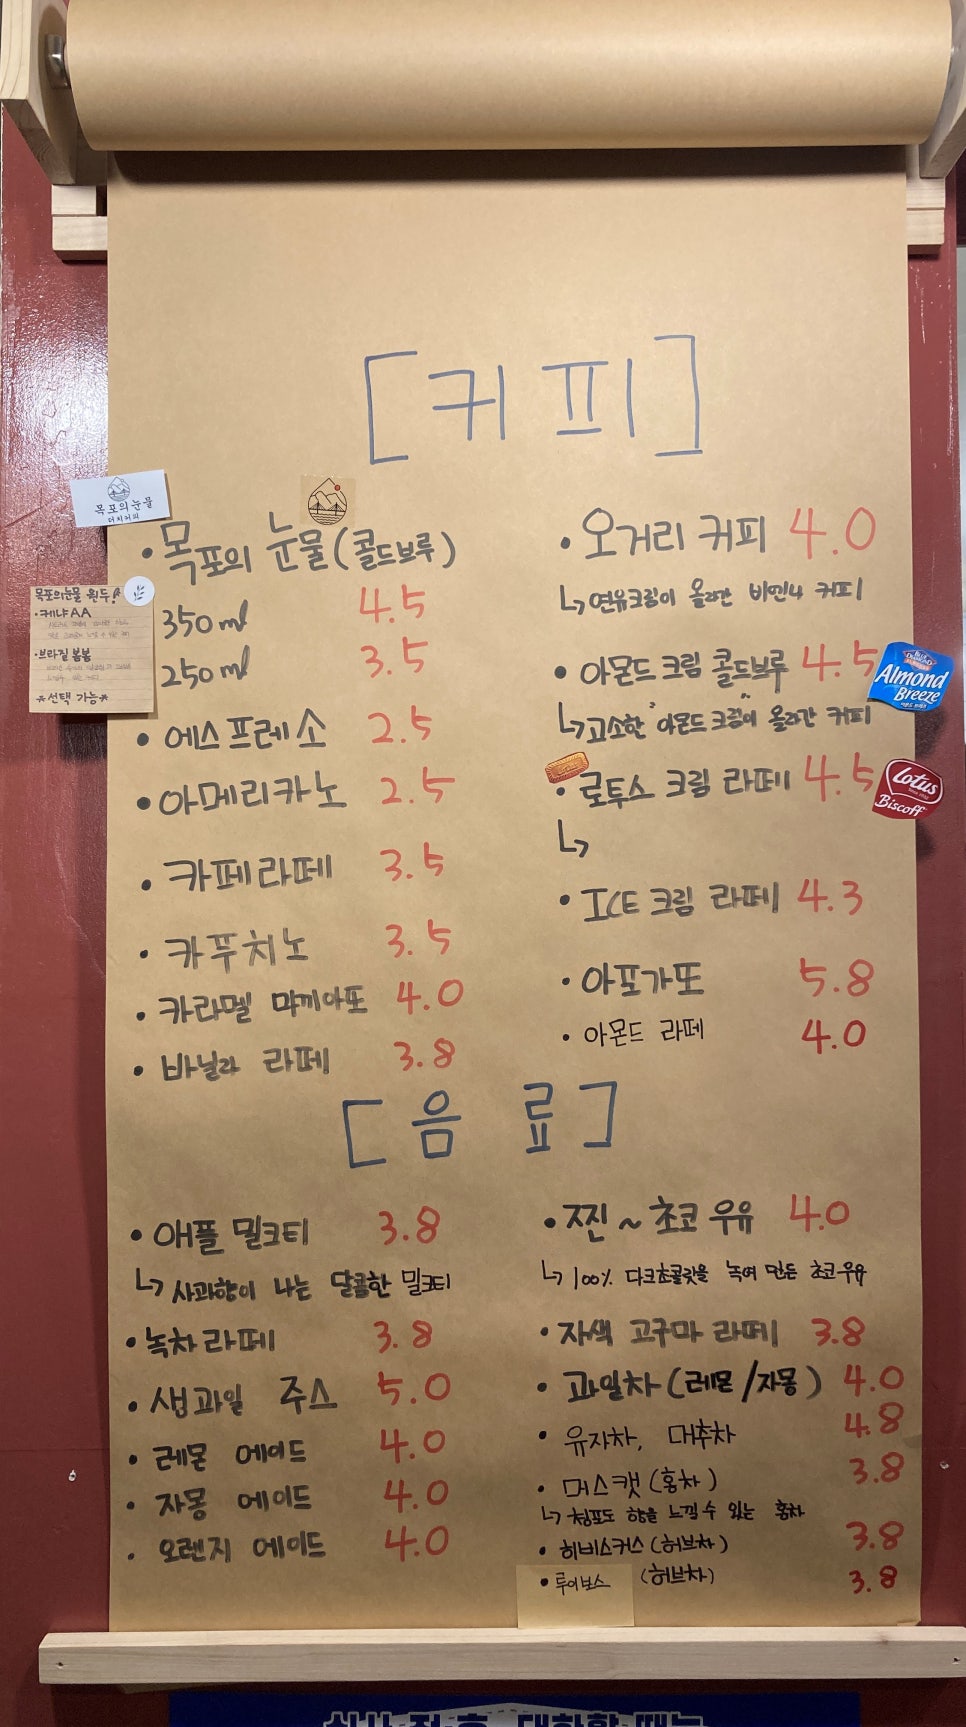 [커피]
목포의눈물
더치커피
• 목포의 눈물(콜드브루)
350ml 4.5
250ml 3.5
목포의눈물 원두!
• 케냐AA
• 브라질 봄봄
*선택 가능*
• 에스프레소 2.5
• 아메리카노 2.5
• 카페라떼 3.5
• 카푸치노 3.5
• 카라멜 먀끼아또 4.0
• 바닐라 라떼 3.8
• 오거리 커피 4.0
↳ 연유크림이 올라간 비엔나 커피
• 아몬드 크림 콜드브루 4.5
↳ 고소한 아몬드 크림이 올라간 커피
BLUE DIAMOND
Almond
Breeze
• 로투스 크림 라떼 4.5
↳
Lotus
Biscoff
• ICE 크림 라떼 4.3
• 아포가또 5.8
• 아몬드 라떼 4.0
[음료]
• 애플 밀크티 3.8
↳ 사과향이 나는 달콤한 밀크티
• 녹차라떼 3.8
• 생과일 주스 5.0
• 레몬 에이드 4.0
• 자몽 에이드 4.0
• 오렌지 에이드 4.0
• 찐~초코우유 4.0
↳ 100% 다크초콜릿을 녹여 만든 초코우유
• 자색 고구마 라떼 3.8
• 과일차(레몬/자몽) 4.0
• 유자차, 대추차 4.8
• 머스캣(홍차) 3.8
↳ 청포도 향을 느낄 수 있는 홍차
• 히비스커스(허브차) 3.8
• 루이보스 (허브차) 3.8